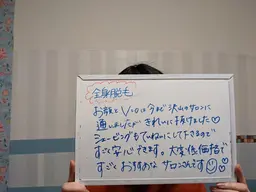 全身脱毛
お顔とVIOは今まで沢山のサロンに
通いましたが きれいに抜けました♡
シェービングもていねいにして下さるので
すごく安心できます。大変低価格で
すごくおすすめなサロンです